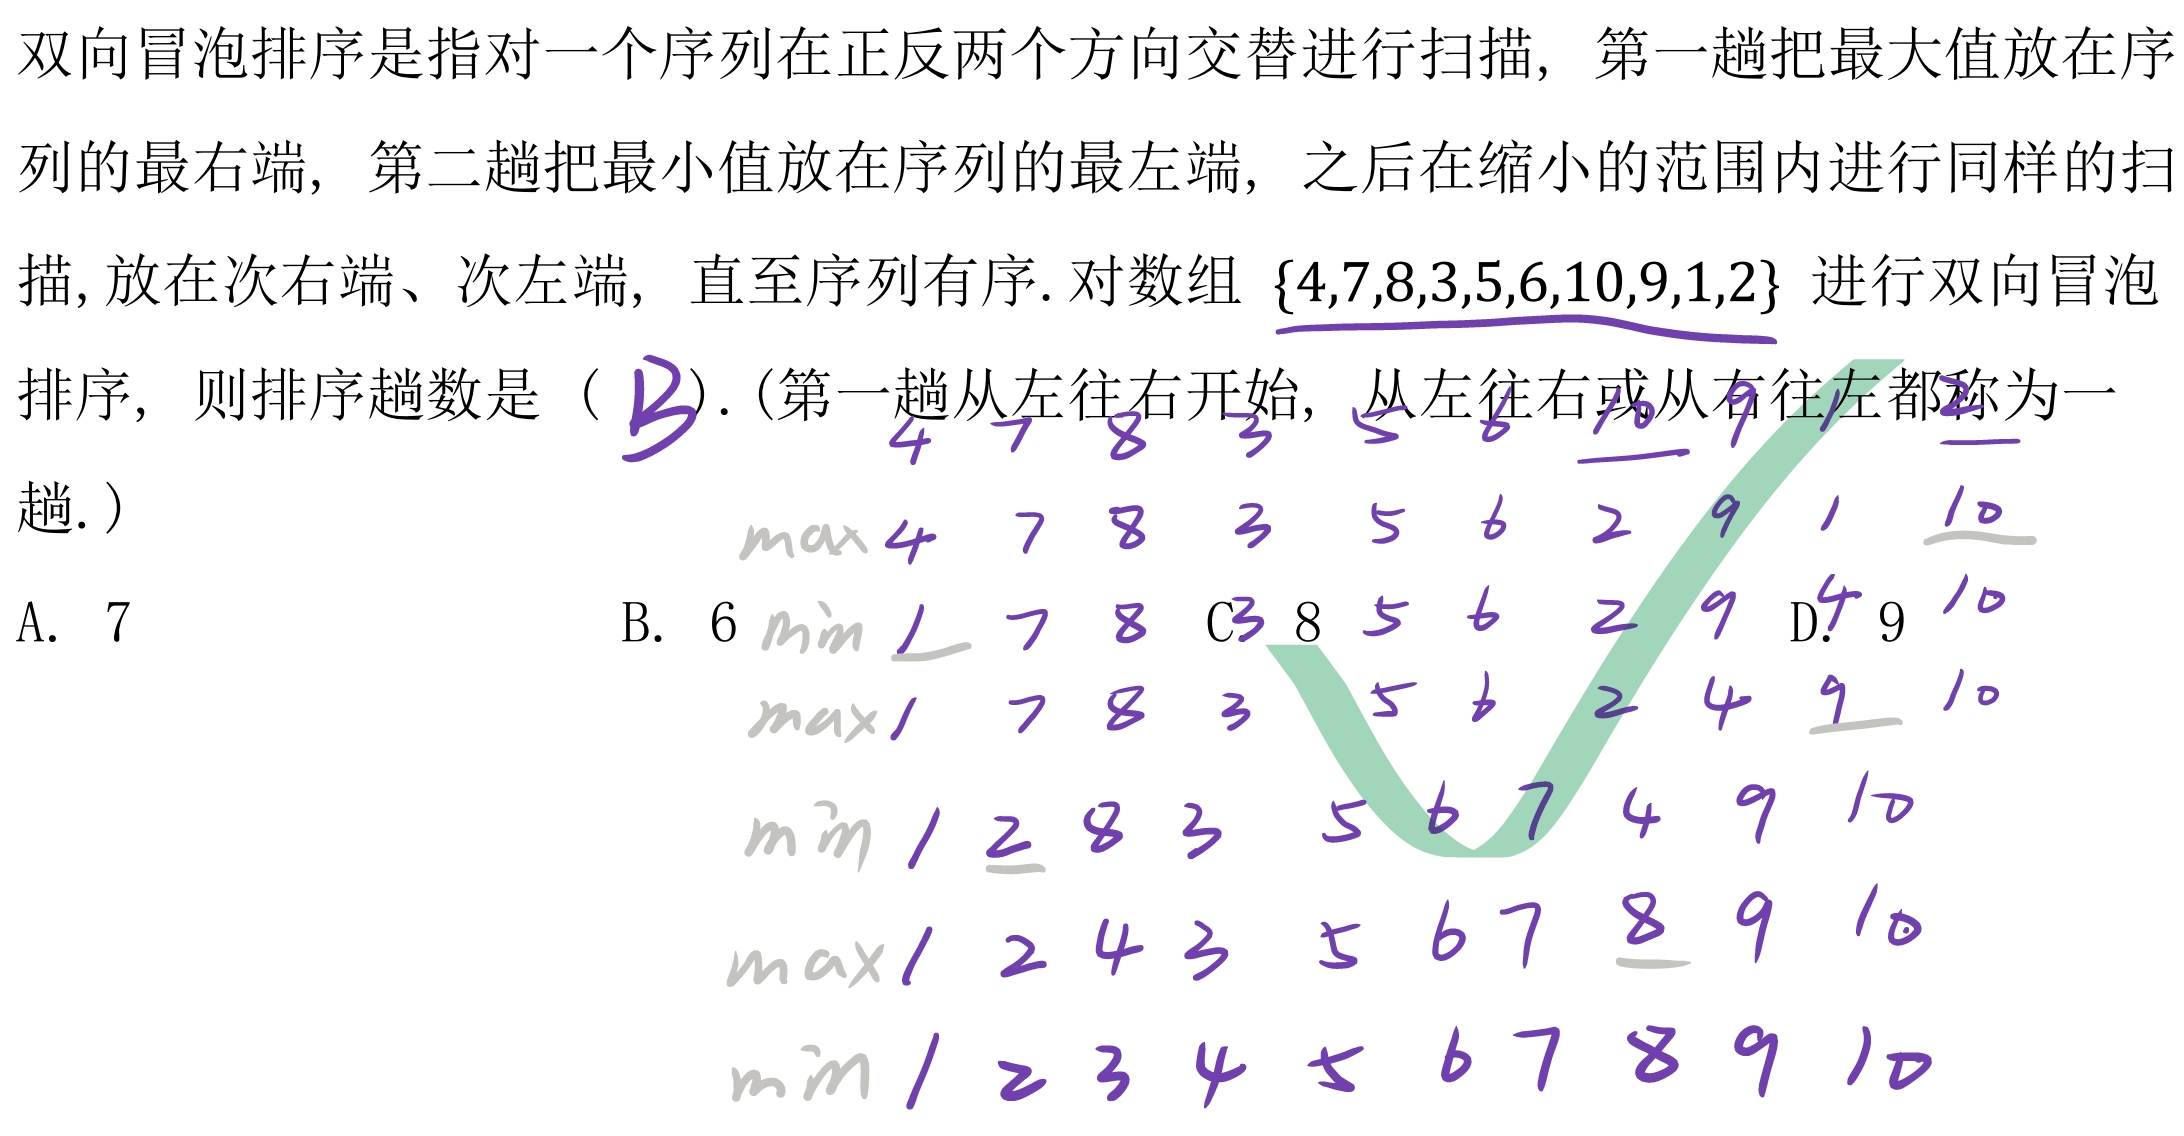 双向冒泡排序是指对一个序列在正反两个方向交替进行扫描, 第一趟把最大值放在序
列的最右端, 第二趟把最小值放在序列的最左端, 之后在缩小的范围内进行同样的扫
描,放在次右端、次左端, 直至序列有序.对数组 {4,7,8,3,5,6,10,9,1,2} 进行双向冒泡
排序, 则排序趟数是 ( B ).(第一趟从左往右开始, 从左往右或从右往左都称为一
4 7 8 3 5 6 10 9 1 2
趟.)
max 4 7 8 3 5 6 2 9 1 10
A. 7 B. 6 C. 8 D. 9
min 1 7 8 3 5 6 2 9 4 10
max 1 7 8 3 5 6 2 4 9 10
min 1 2 8 3 5 6 7 4 9 10
max 1 2 4 3 5 6 7 8 9 10
min 1 2 3 4 5 6 7 8 9 10